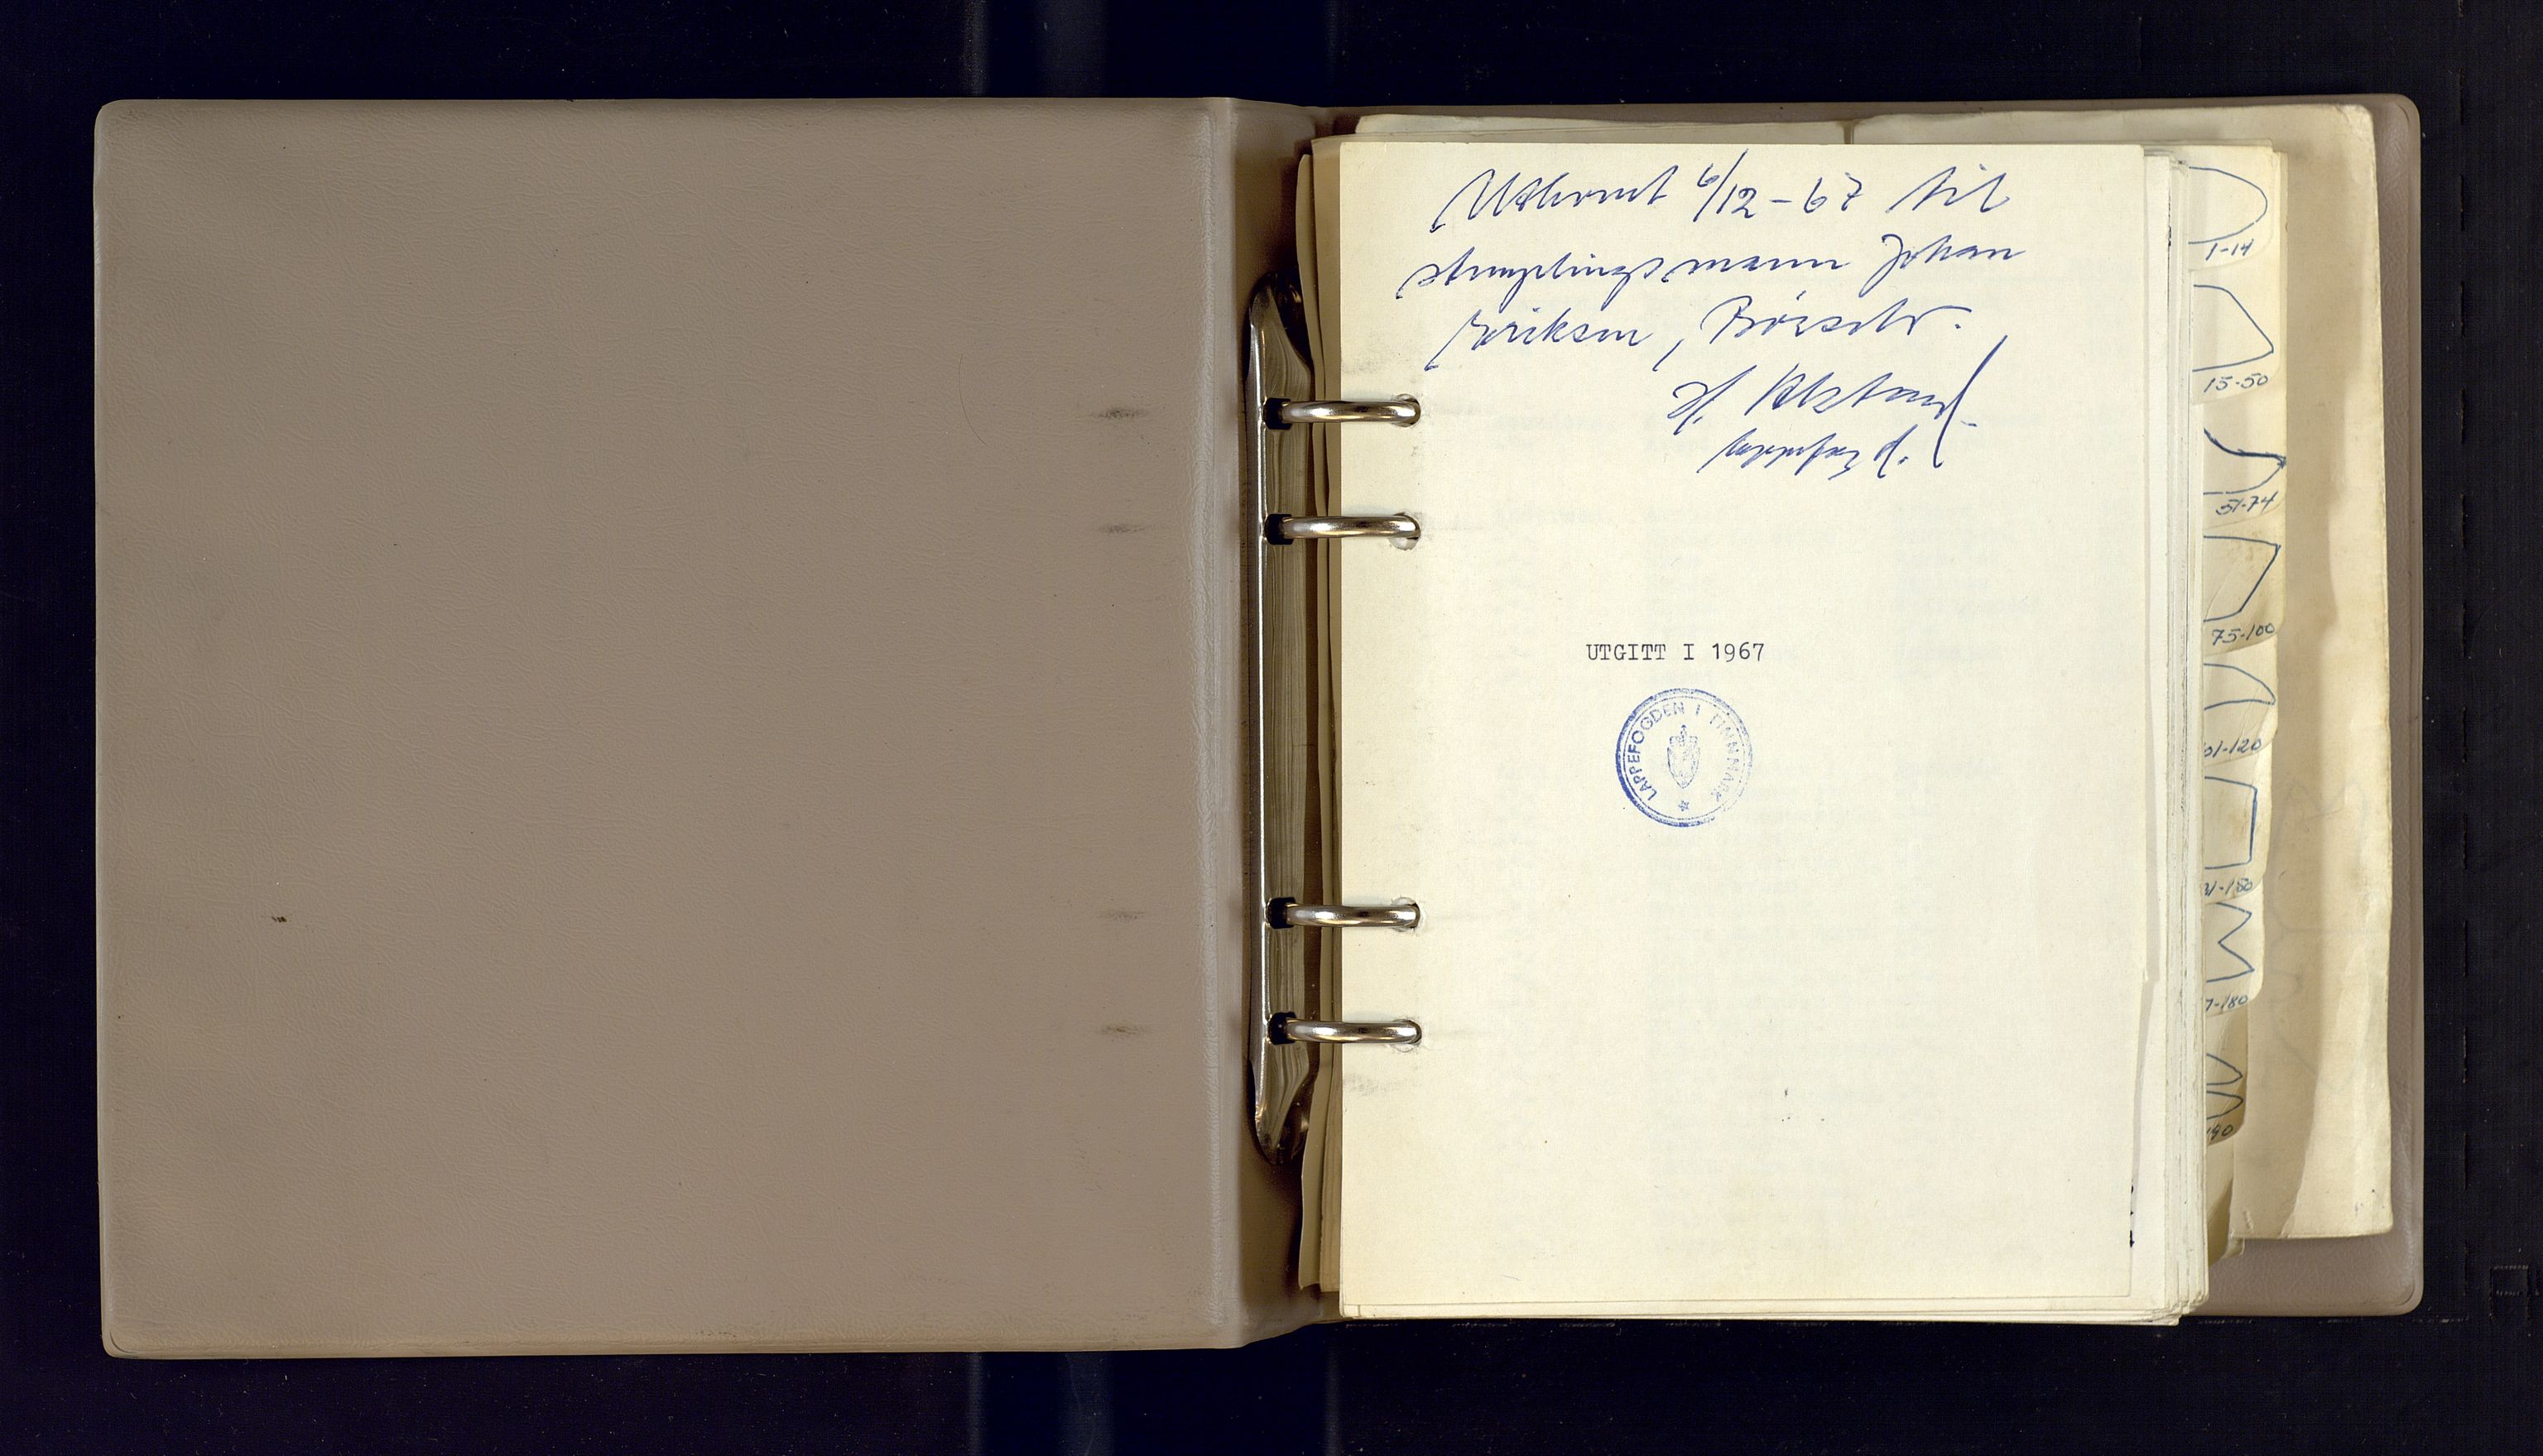 Utlevert 6/12-67 til
stemplingsmann Johan
Eriksen, Børselv.
lappefogd.
UTGITT I 1967
LAPPEFOGDEN I FINNMARK
1-14
15-50
51-74
75-100
01-120
21-150
7-180
190